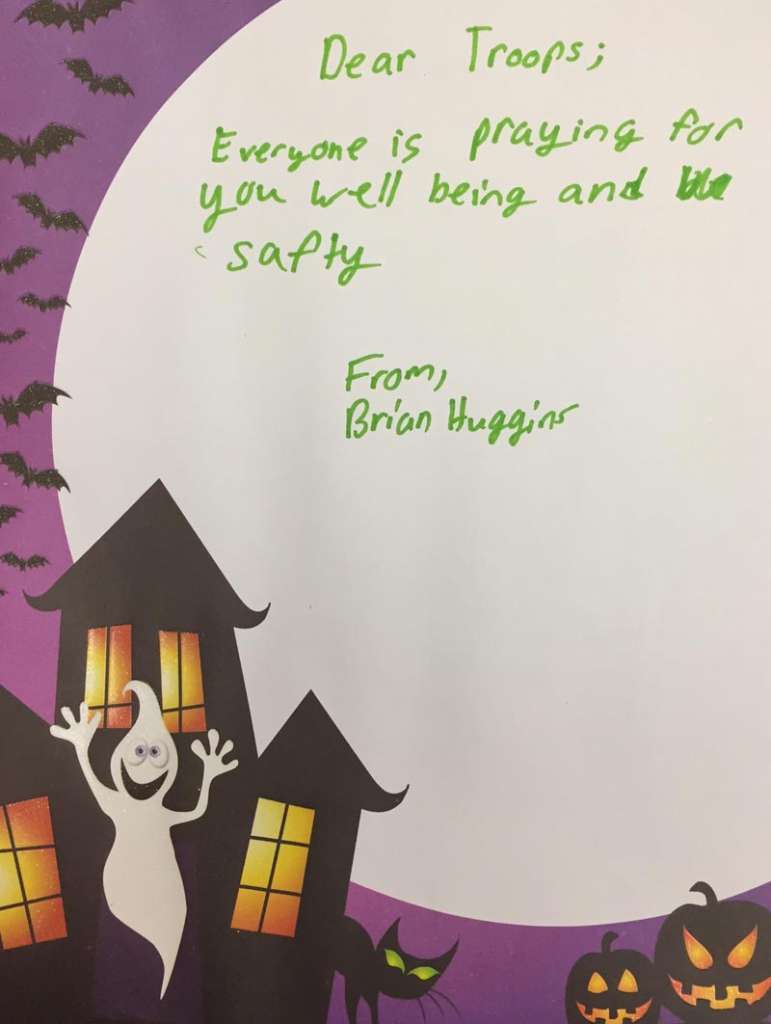 Dear Troops;
Everyone is praying for
you well being and
safty
From,
Brian Huggins